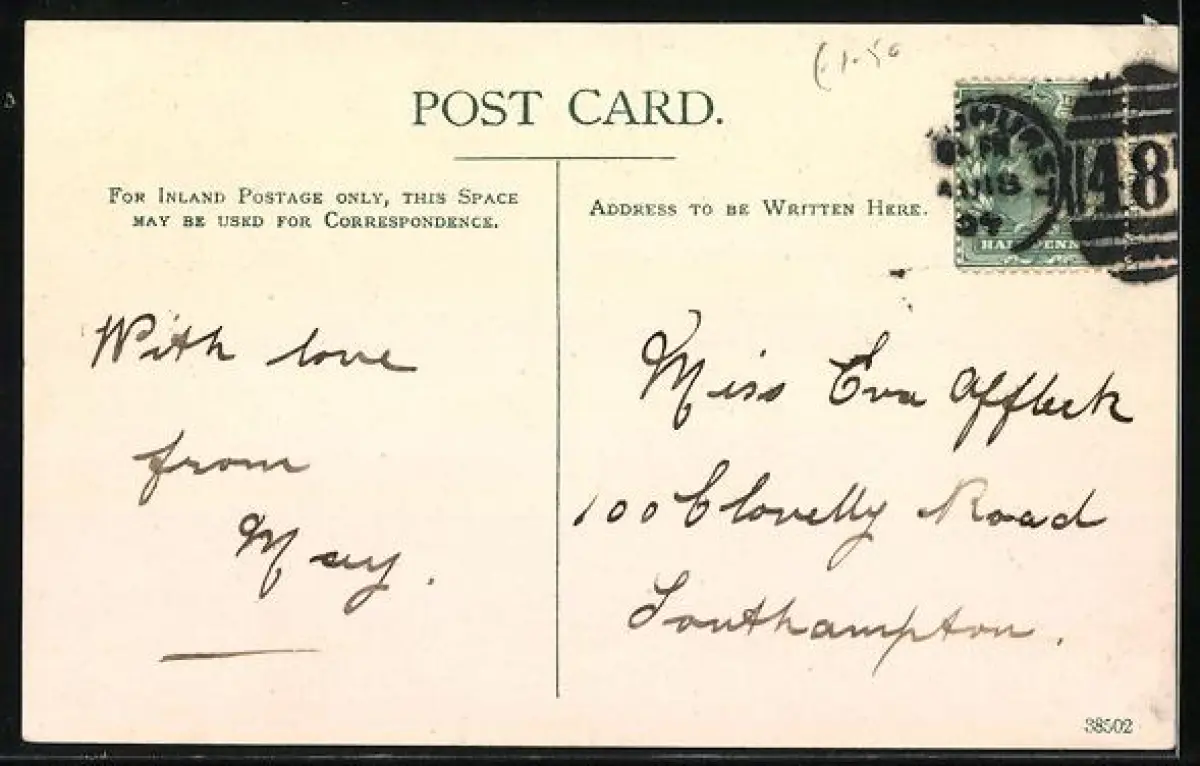 POST CARD.
FOR INLAND POSTAGE ONLY, THIS SPACE
MAY BE USED FOR CORRESPONDENCE.
ADDRESS TO BE WRITTEN HERE.
48
HALFPENNY
With love
from
May.
Miss Eva Affleck
100 Clovelly Road
Southampton.
38502